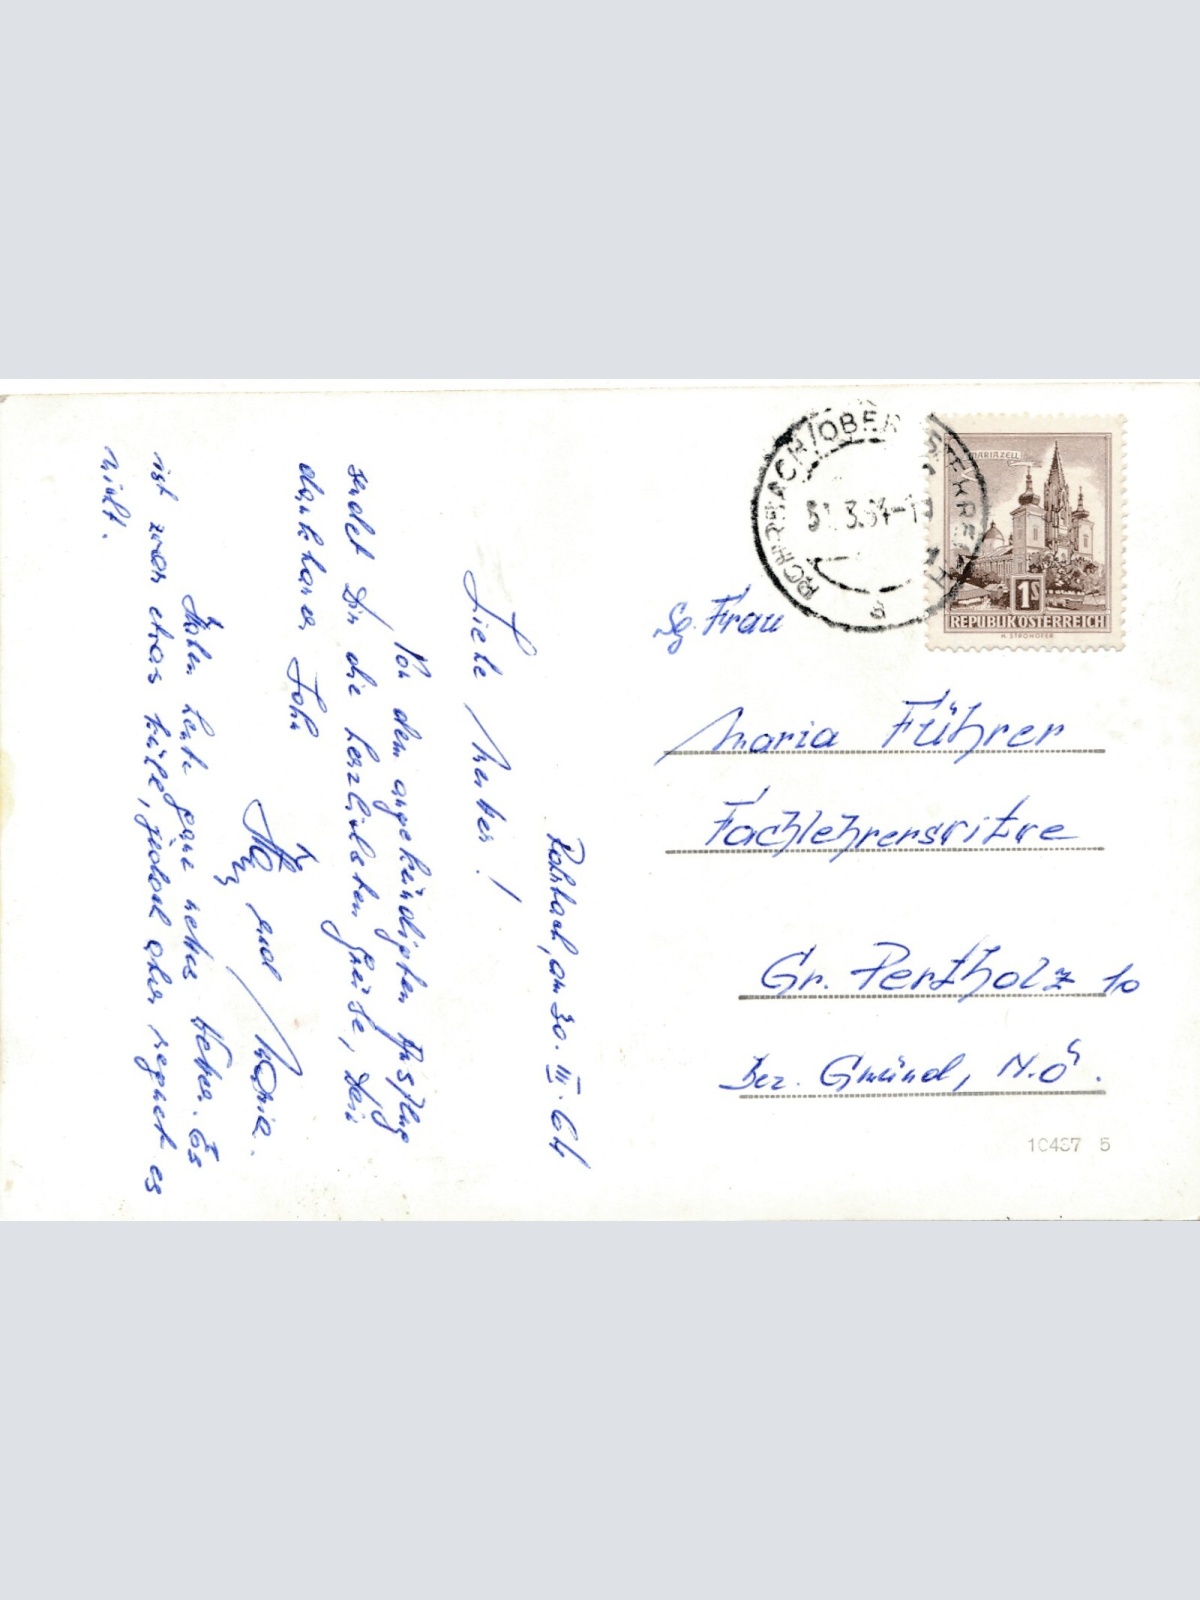 Rohrbach, am 30. III. 64
Liebe Mutter!
Von dem angekündigten Ausflug
sendet Dir die herzlichsten Grüße, Dein
dankbarer Sohn
und Maria.
Haben heute ganz nettes Wetter. Es
ist zwar etwas kühle, jedoch aber regnet es
nicht.
ROHRBACH/OBERÖSTERREICH
31.3.64-1
MARIAZELL
1S
REPUBLIK ÖSTERREICH
H. STROHOFER
Sg. Frau
Maria Führer
Fachlehrerswitwe
Gr. Pertholz 10
Bez. Gmünd, N.Ö.
10487 5